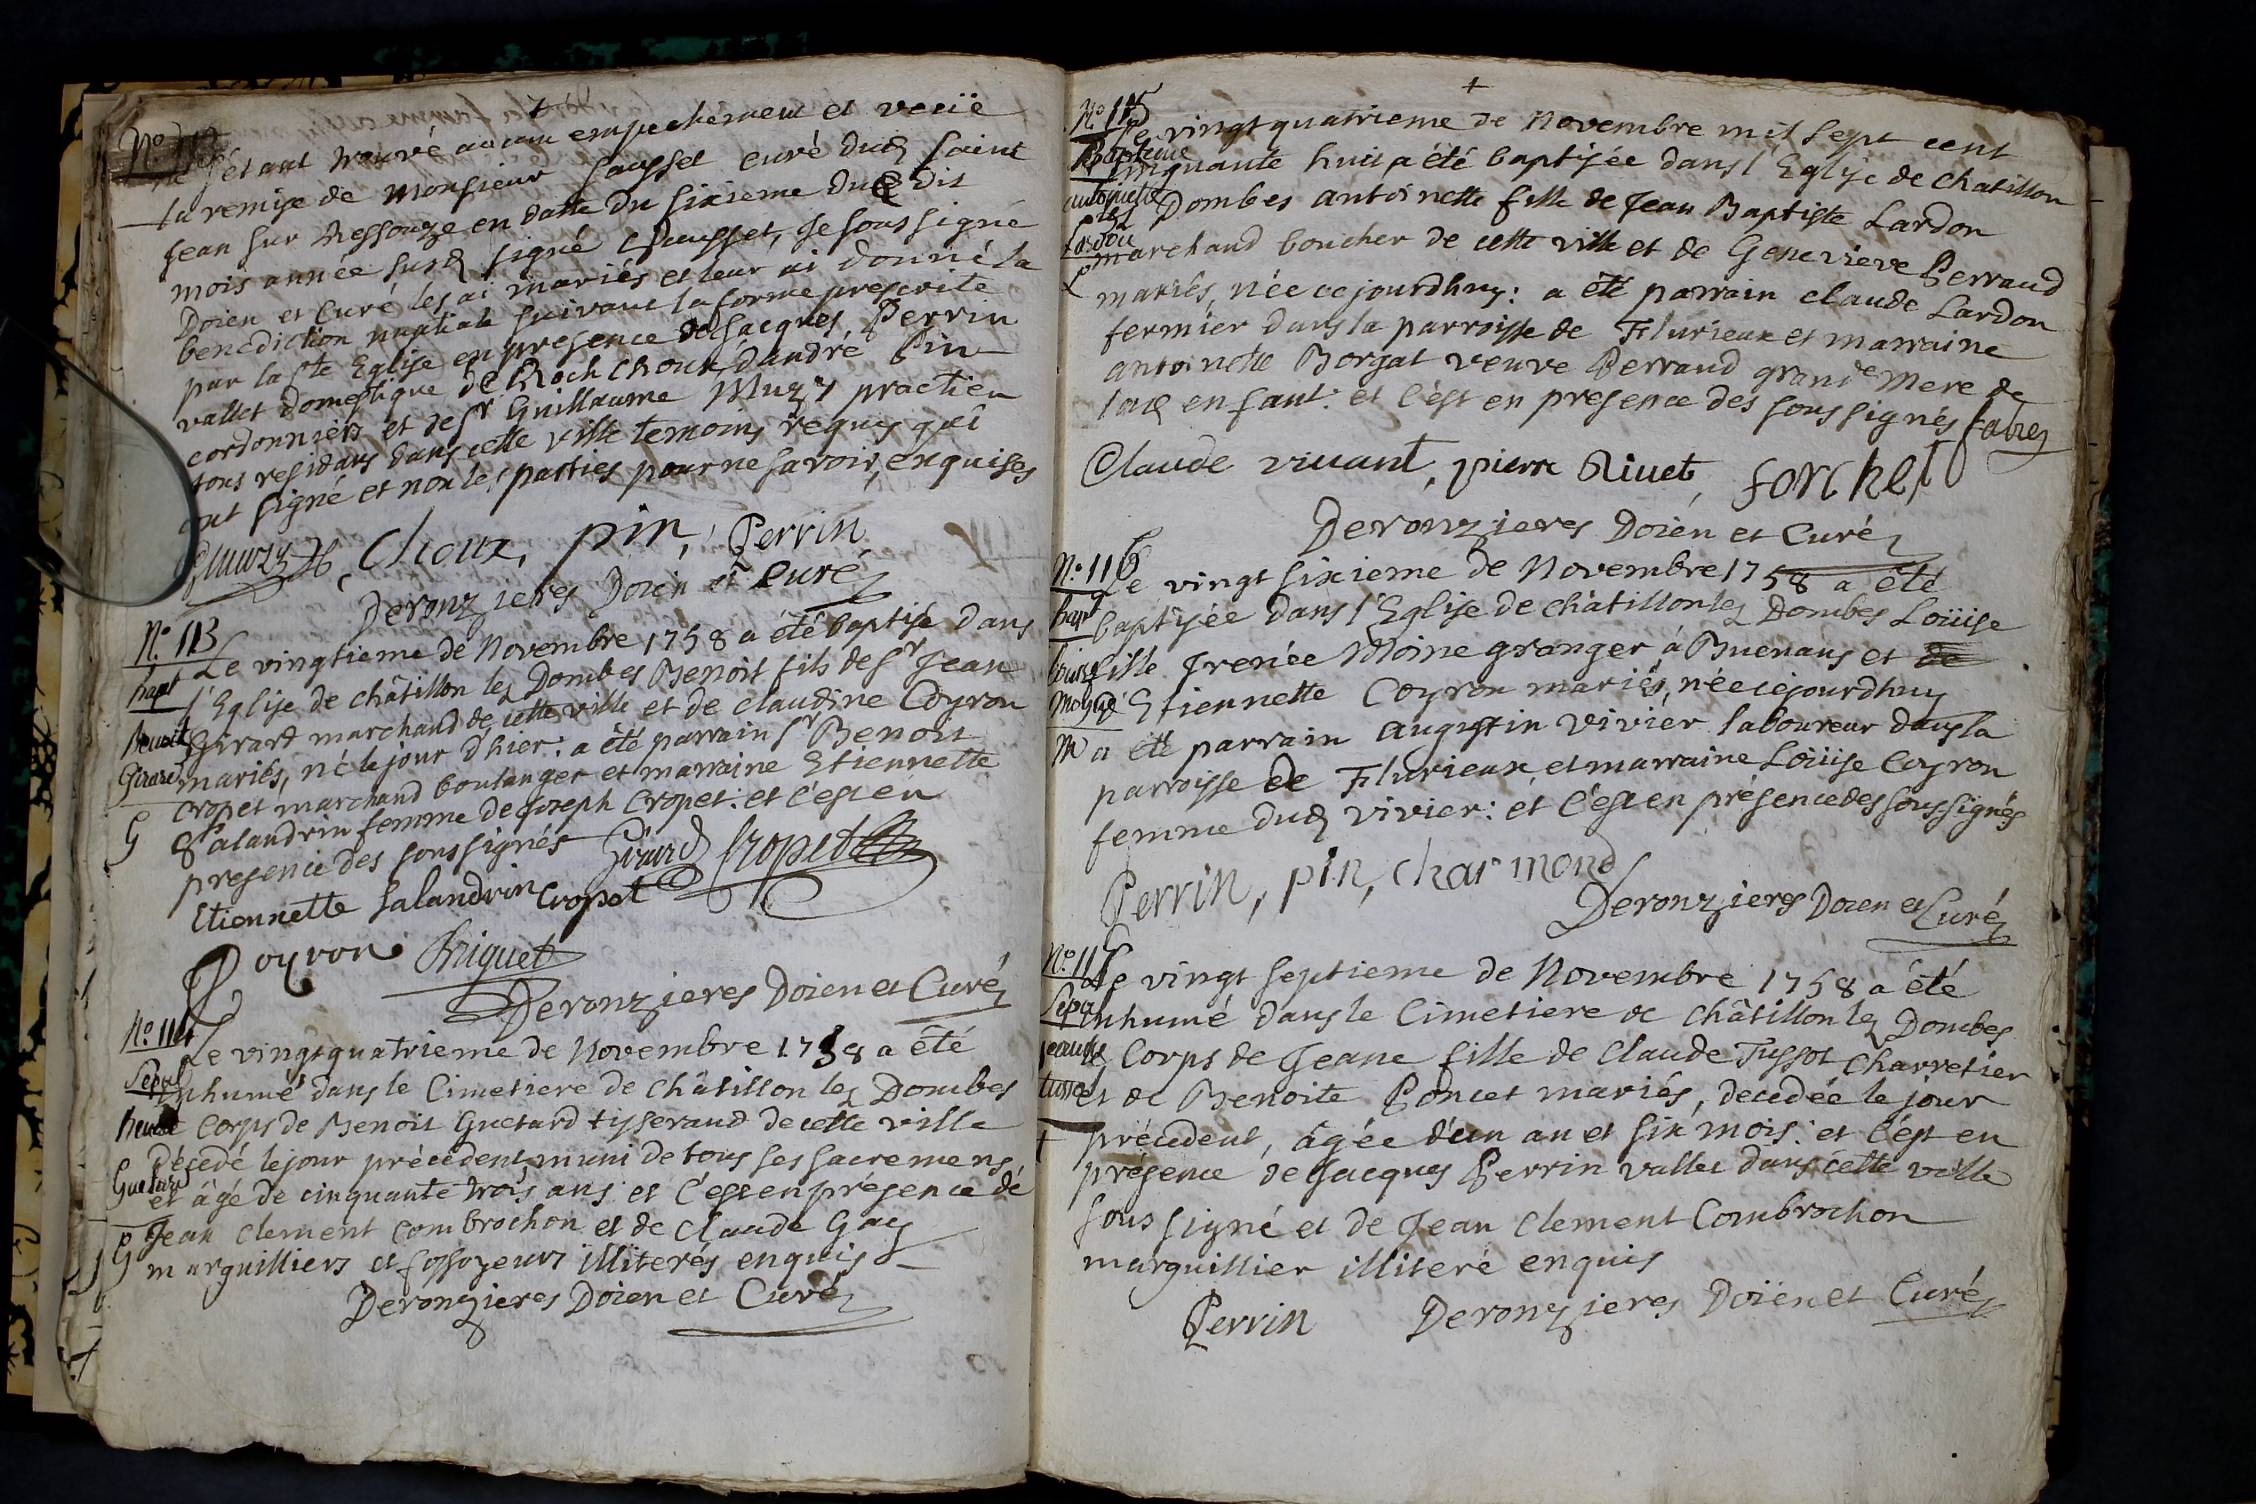 ne s'étant trouvé aucun empechement et veüe
la remise de Monsieur Sausset curé dud Saint
Jean sur Ressouze en datte du sixieme du dit
mois année susd signé Sausset, Je soussigné
Doien et Curé les ai mariés et leur ai donné la
benediction nuptiale suivant la forme prescrite
par la ste Eglise en presence de Jacques Perrin
vallet domestique de Roch Choux, d'andré Pin
cordonniers et de sr Guillaume Muzy practicien
tous residans dans cette ville temoins requis qui
ont signé et non les parties pour ne savoir, enquises
Choux, pin, Perrin
Deronzieres Doien et Curé
No. 113
bapt
Benoit
Girard
G
Le vingtieme de Novembre 1758 a été baptisé dans
l'Eglise de châtillon lez Dombes Benoit fils de sr Jean
Girard marchand de cette ville et de claudine Coyron
mariés, né le jour d'hier: a été parrain sr Benoit
Cropet marchand boulanger et marraine Etiennette
Salandrin femme de Joseph Cropet: et c'est en
presence des soussignés Girard Cropet
Etiennette Salandrin Cropet
Coyron Briguet
Deronzieres Doien et Curé
No. 114
Sepul
benoit
Guetard
G
Le vingt quatrieme de Novembre 1758 a été
inhumé dans le Cimetiere de châtillon lez Dombes
le Corps de Benoit Guetard tisserand de cette ville
décédé le jour précédent, muni de tous ses sacremens
et âgé de cinquante trois ans: et c'est en presence de
Jean Clement Combrochon et de Claude Gay
marguilliers et fossoyeurs illiterés enquis
Deronzieres Doien et Curé
No 115
Bapteme
antoinette
Lardon
L
Le vingt quatrieme de Novembre mil sept cent
cinquante huit a été baptisée dans l'Eglise de chatillon
les Dombes antoinette fille de Jean Baptiste Lardon
marchand boucher de cette ville et de Genevieve Perraud
mariés, née ce jourdhuy: a été parrain claude Lardon
fermier dans la parroisse de Flurieux et marraine
antoinette Borgat veuve Perraud grande Mere de
lad enfant: et c'est en presence des soussignés
Claude vivant, pierre Rivet,
Deronzieres Doien et Curé
No. 116
bapt
Louise
Moine
M
Le vingt sixieme de Novembre 1758 a été
baptisée dans l'Eglise de châtillon lez Dombes Loüise
fille Irenée Moine granger à Buenans et de
Etiennette Coyron mariés, née ce jourdhuy
a été parrain augustin vivier laboureur dans la
parroisse de Flurieux, et marraine Loüise Coyron
femme dud vivier: et c'est en présence des soussignés
Perrin, pin, charmond
Deronzieres Doien et Curé
No. 117
Sepul
jeanne
tussot
t
Le vingt septieme de Novembre 1758 a été
inhumé dans le Cimetiere de châtillon lez Dombes
le Corps de Jeane fille de Claude Tussot Charretier
et de Benoite Poncet mariés, decedée le jour
précedent, âgée d'un an et six mois: et c'est en
présence de Jacques Perrin vallet dans cette ville
soussigné et de Jean Clement Combrochon
marguillier illiteré enquis
Perrin Deronzieres Doïen et Curé